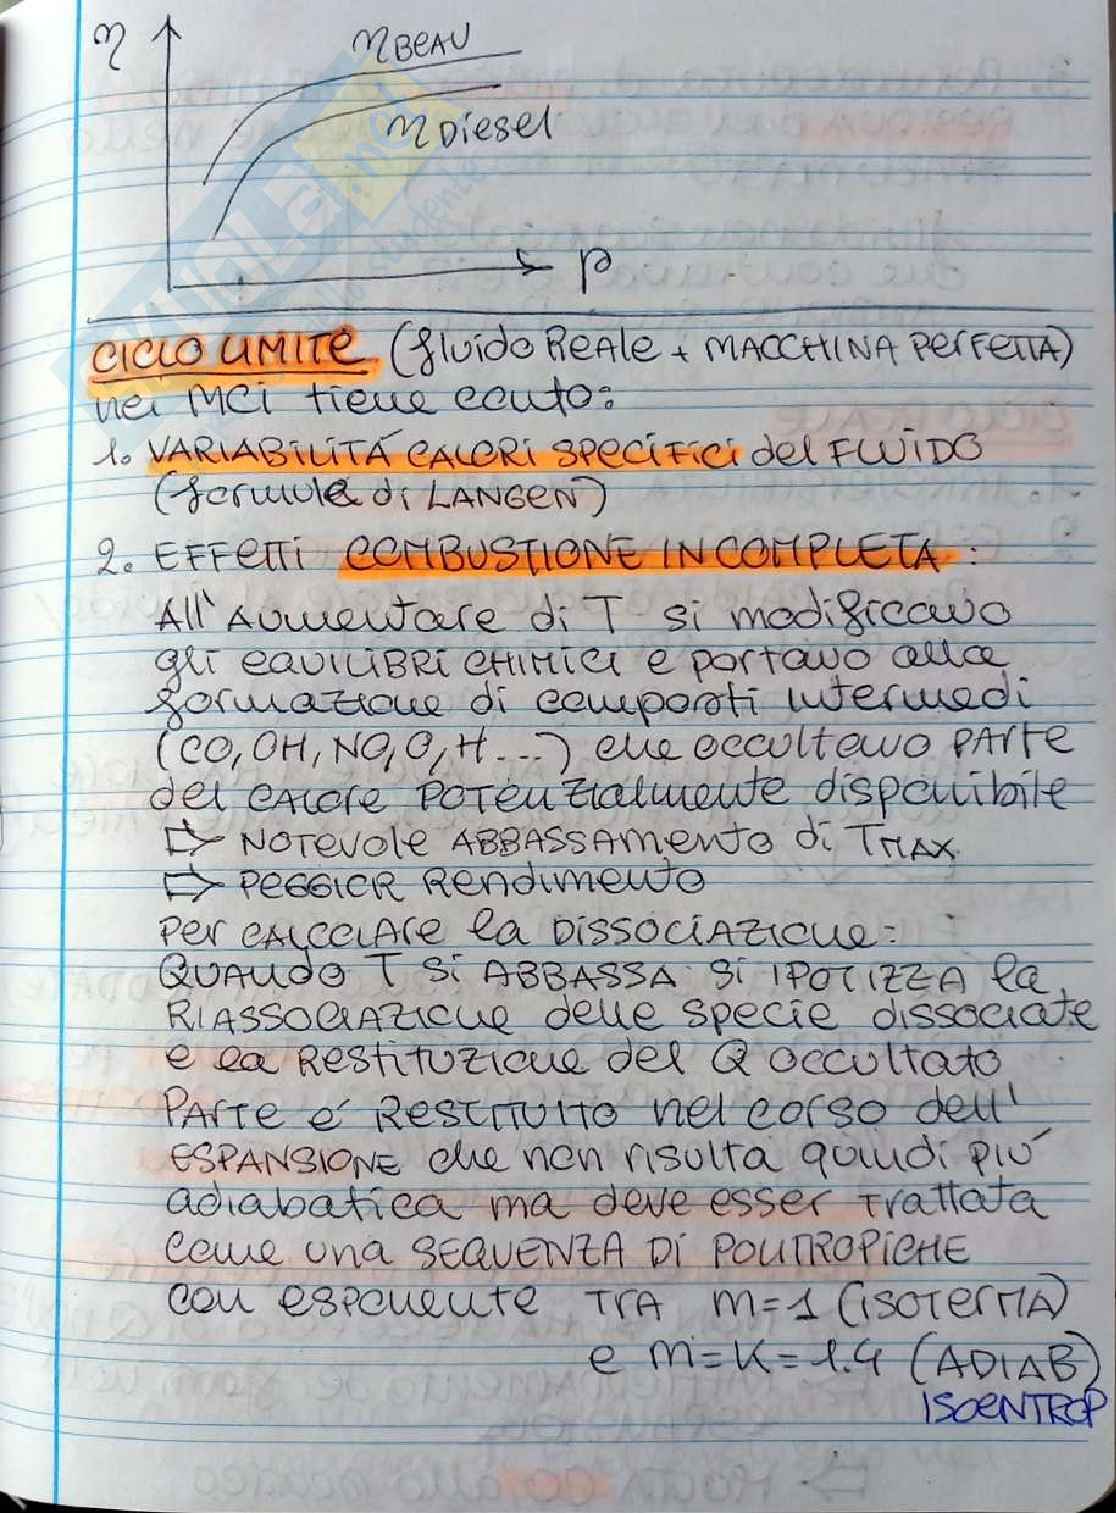 η
ηBEAU
ηDiesel
ρ
CICLO LIMITE (fluido Reale + MACCHINA PERFETTA)
nei MCI tiene conto:
1. VARIABILITÁ CALORI SPECIFICI del FLUIDO
(formula di LANGEN)
2. EFFETTI COMBUSTIONE INCOMPLETA:
All'Aumentare di T si modificano
gli EQUILIBRI CHIMICI e portano alla
formazione di composti intermedi
(CO, OH, NO, O, H ...) che occultano PARTE
del CALORE POTENZIALMENTE disponibile
⇨ NOTEVOLE ABBASSAMENTO di TMAX
⇨ PEGGIOR Rendimento
Per CALCOLARE la DISSOCIAZIONE:
QUANDO T SI ABBASSA SI IPOTIZZA la
RIASSOCIAZIONE delle specie dissociate
e la RESTITUZIONE del Q occultato
PARTE é RESTITUITO nel corso dell'
ESPANSIONE che non risulta quindi piú
adiabatica ma deve esser trattata
come una SEQUENZA DI POLITROPICHE
con esponente TRA m=1 (ISOTERMA)
e m=K=1.4 (ADIAB)
ISOENTROP